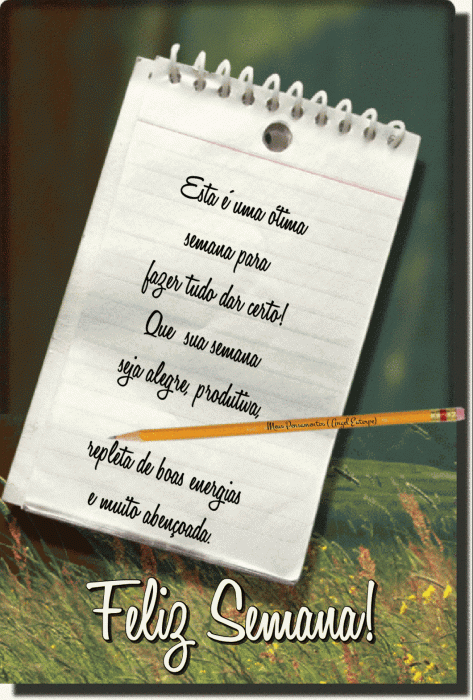 Esta é uma ótima
semana para
fazer tudo dar certo!
Que sua semana
seja alegre, produtiva,
Meus Pensamentos (Angel Euterpe)
repleta de boas energias
e muito abençoada.
Feliz Semana!